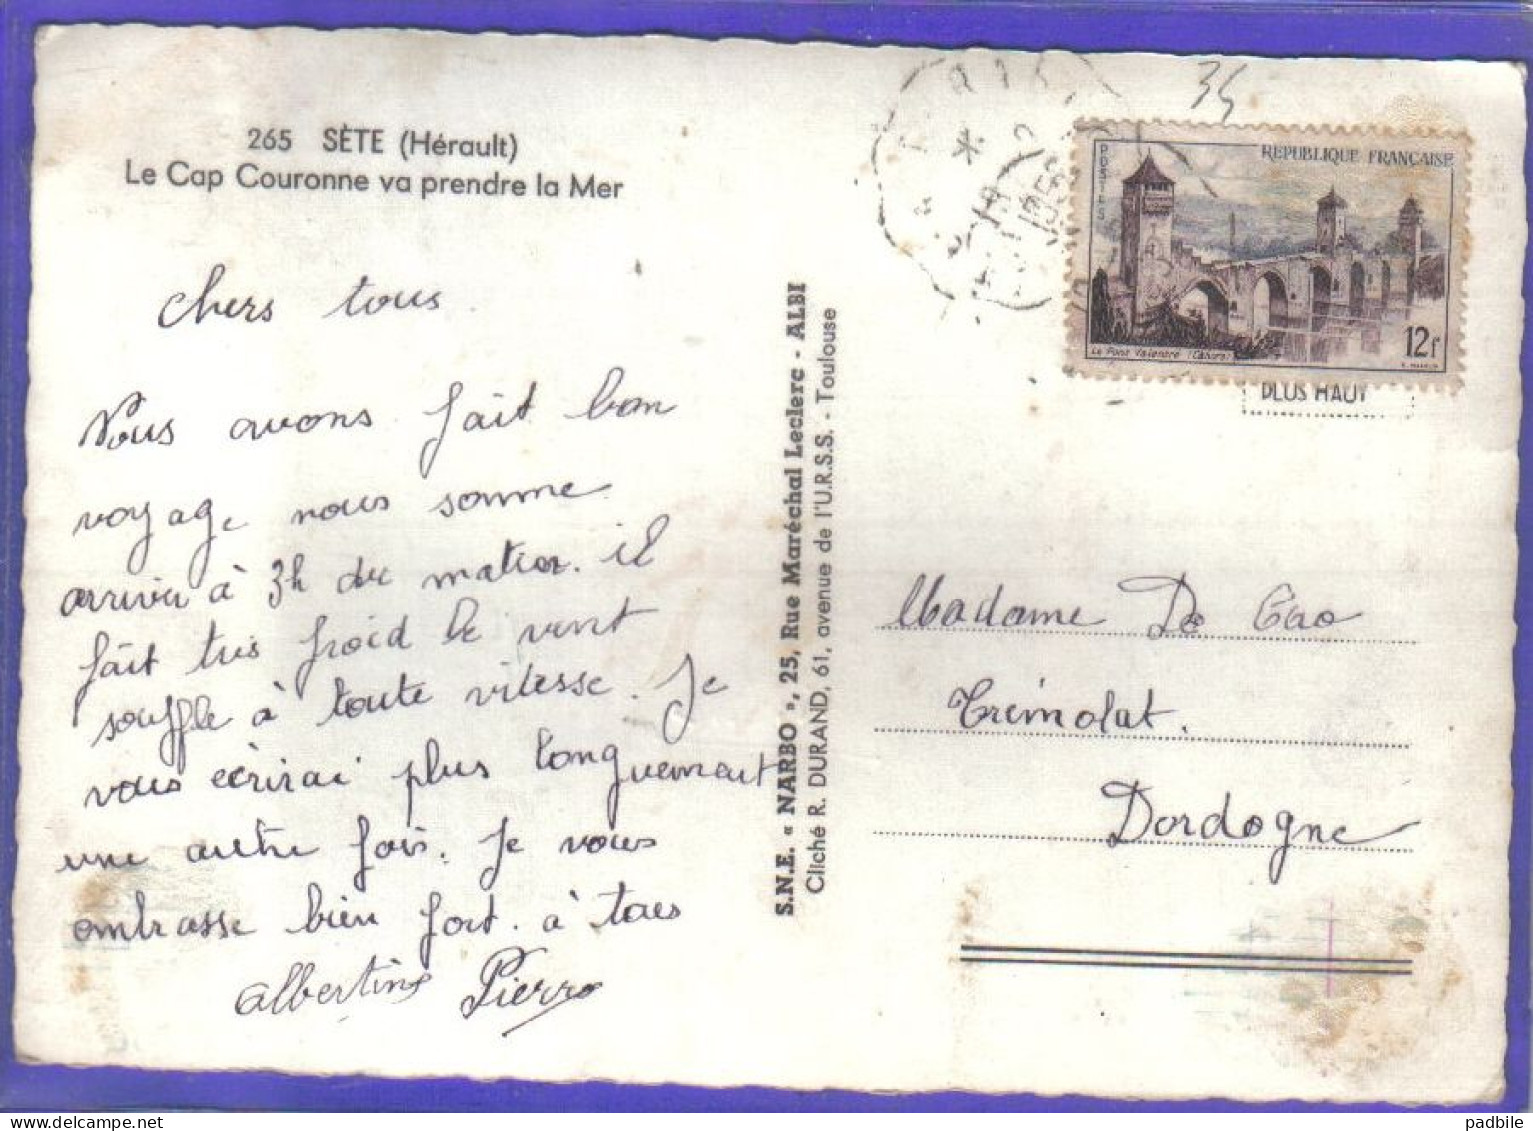 265 SÈTE (Hérault)
Le Cap Couronne va prendre la Mer
chers tous
Nous avons fait bon
voyage nous somme
arriver à 3h du matin. il
fait tres froid le vent
souffle à toute vitesse. Je
vous ecrirai plus longuement
une autre fois. Je vous
embrasse bien fort. à tous
Albertine Pierre
S.N.E. « NARBO », 25, Rue Maréchal Leclerc - ALBI
Cliché R. DURAND, 61, avenue de l'U.R.S.S. - Toulouse
34
REPUBLIQUE FRANÇAISE
POSTES
12f
Le Pont Valentré (Cahors)
PLUS HAUT
Madame De
Trémolat.
Dordogne
padbile